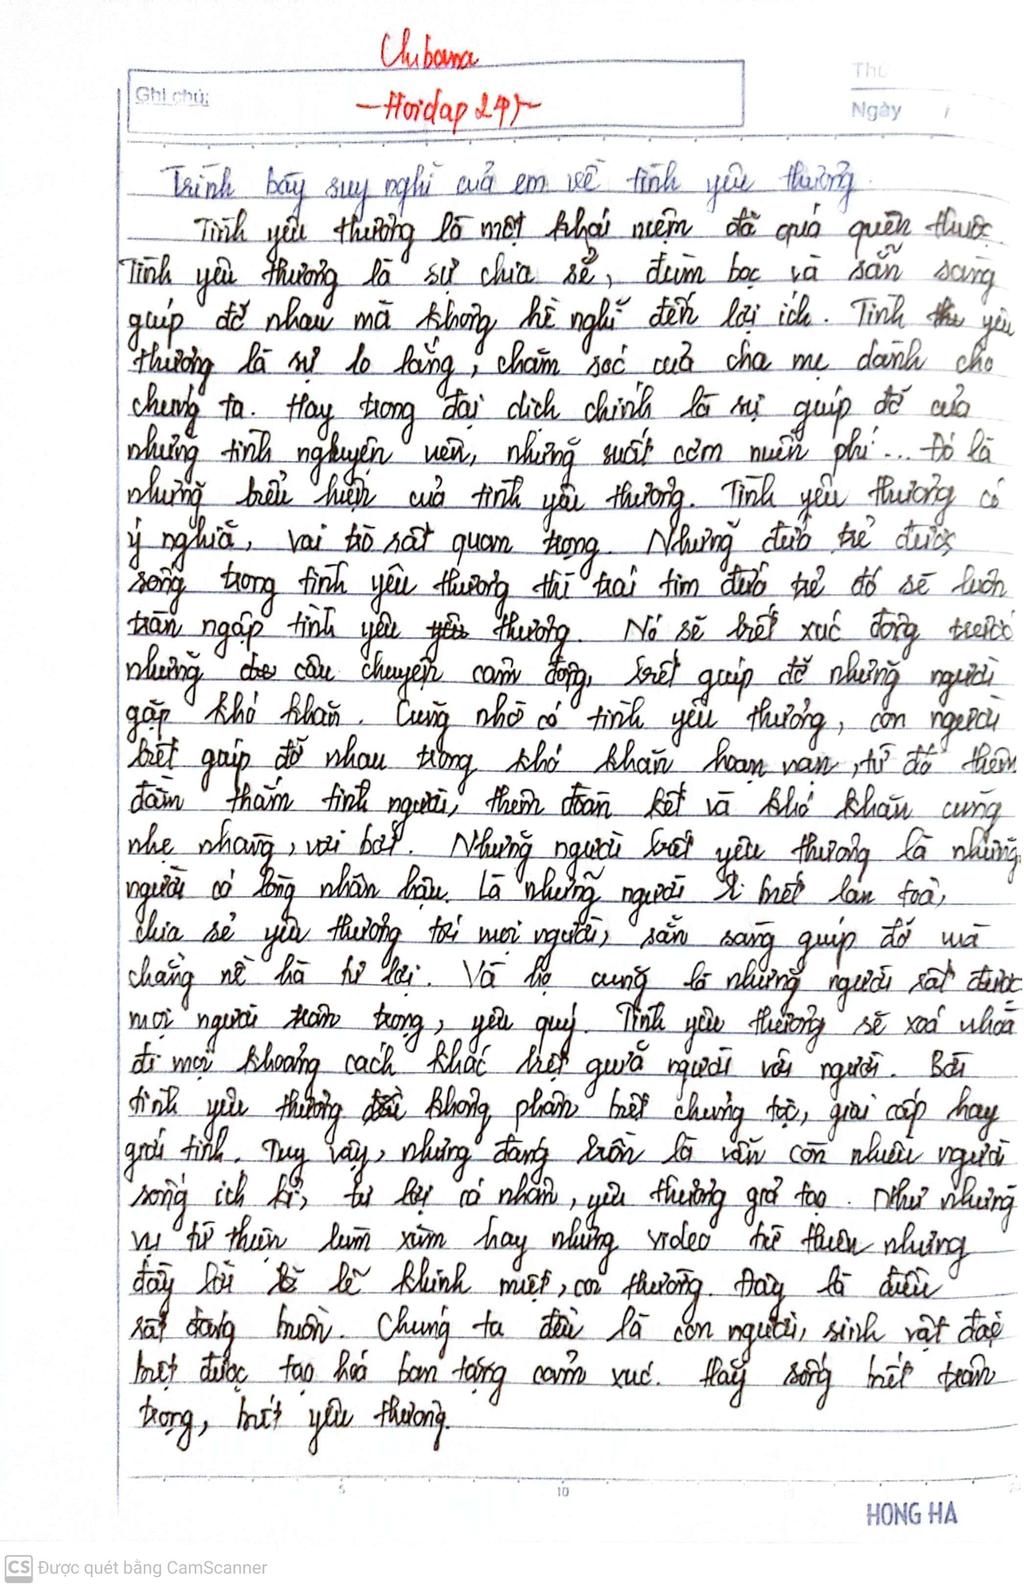 Chibana
Ghi chú:
-Hoidap 247-
Thứ
Ngày /
Trình bày suy nghĩ của em về tình yêu thương.
Tình yêu thương là một khái niệm đã quá quen thuộc.
Tình yêu thương là sự chia sẻ, đùm bọc và sẵn sàng
giúp đỡ nhau mà không hề nghĩ đến lợi ích. Tình yêu
thương là sự lo lắng, chăm sóc của cha mẹ dành cho
chúng ta. Hay trong đại dịch chính là sự giúp đỡ của
những tình nguyện viên, những suất cơm miễn phí... Đó là
những biểu hiện của tình yêu thương. Tình yêu thương có
ý nghĩa, vai trò rất quan trọng. Những đứa trẻ được
sống trong tình yêu thương thì trái tim đứa trẻ đó sẽ luôn
tràn ngập tình yêu thương. Nó sẽ biết xúc động trước
những câu chuyện cảm động, biết giúp đỡ những người
gặp khó khăn. Cũng nhờ có tình yêu thương, con người
biết giúp đỡ nhau trong khó khăn hoạn nạn, từ đó thêm
đằm thắm tình người, thêm đoàn kết và khó khăn cũng
nhẹ nhàng, vơi bớt. Những người biết yêu thương là những
người có lòng nhân hậu. Là những người biết lan toả,
chia sẻ yêu thương tới mọi người, sẵn sàng giúp đỡ mà
chẳng nề hà tư lợi. Và họ cũng là những người rất được
mọi người trân trọng, yêu quý. Tình yêu thương sẽ xoá nhoà
đi mọi khoảng cách khác biệt giữa người với người. Bởi
tình yêu thương không phân biệt chủng tộc, giai cấp hay
giới tính. Tuy vậy, nhưng đáng buồn là vẫn còn nhiều người
sống ích kỉ, tư lợi cá nhân, yêu thương giả tạo. Như những
vụ từ thiện lùm xùm hay những video từ thiện nhưng
đầy lời lẽ khinh miệt, coi thường. Đây là điều
rất đáng buồn. Chúng ta đều là con người, sinh vật đặc
biệt được tạo hoá ban tặng cảm xúc. Hãy sống biết trân
trọng, biết yêu thương.
5 10
HONG HA
CS Được quét bằng CamScanner